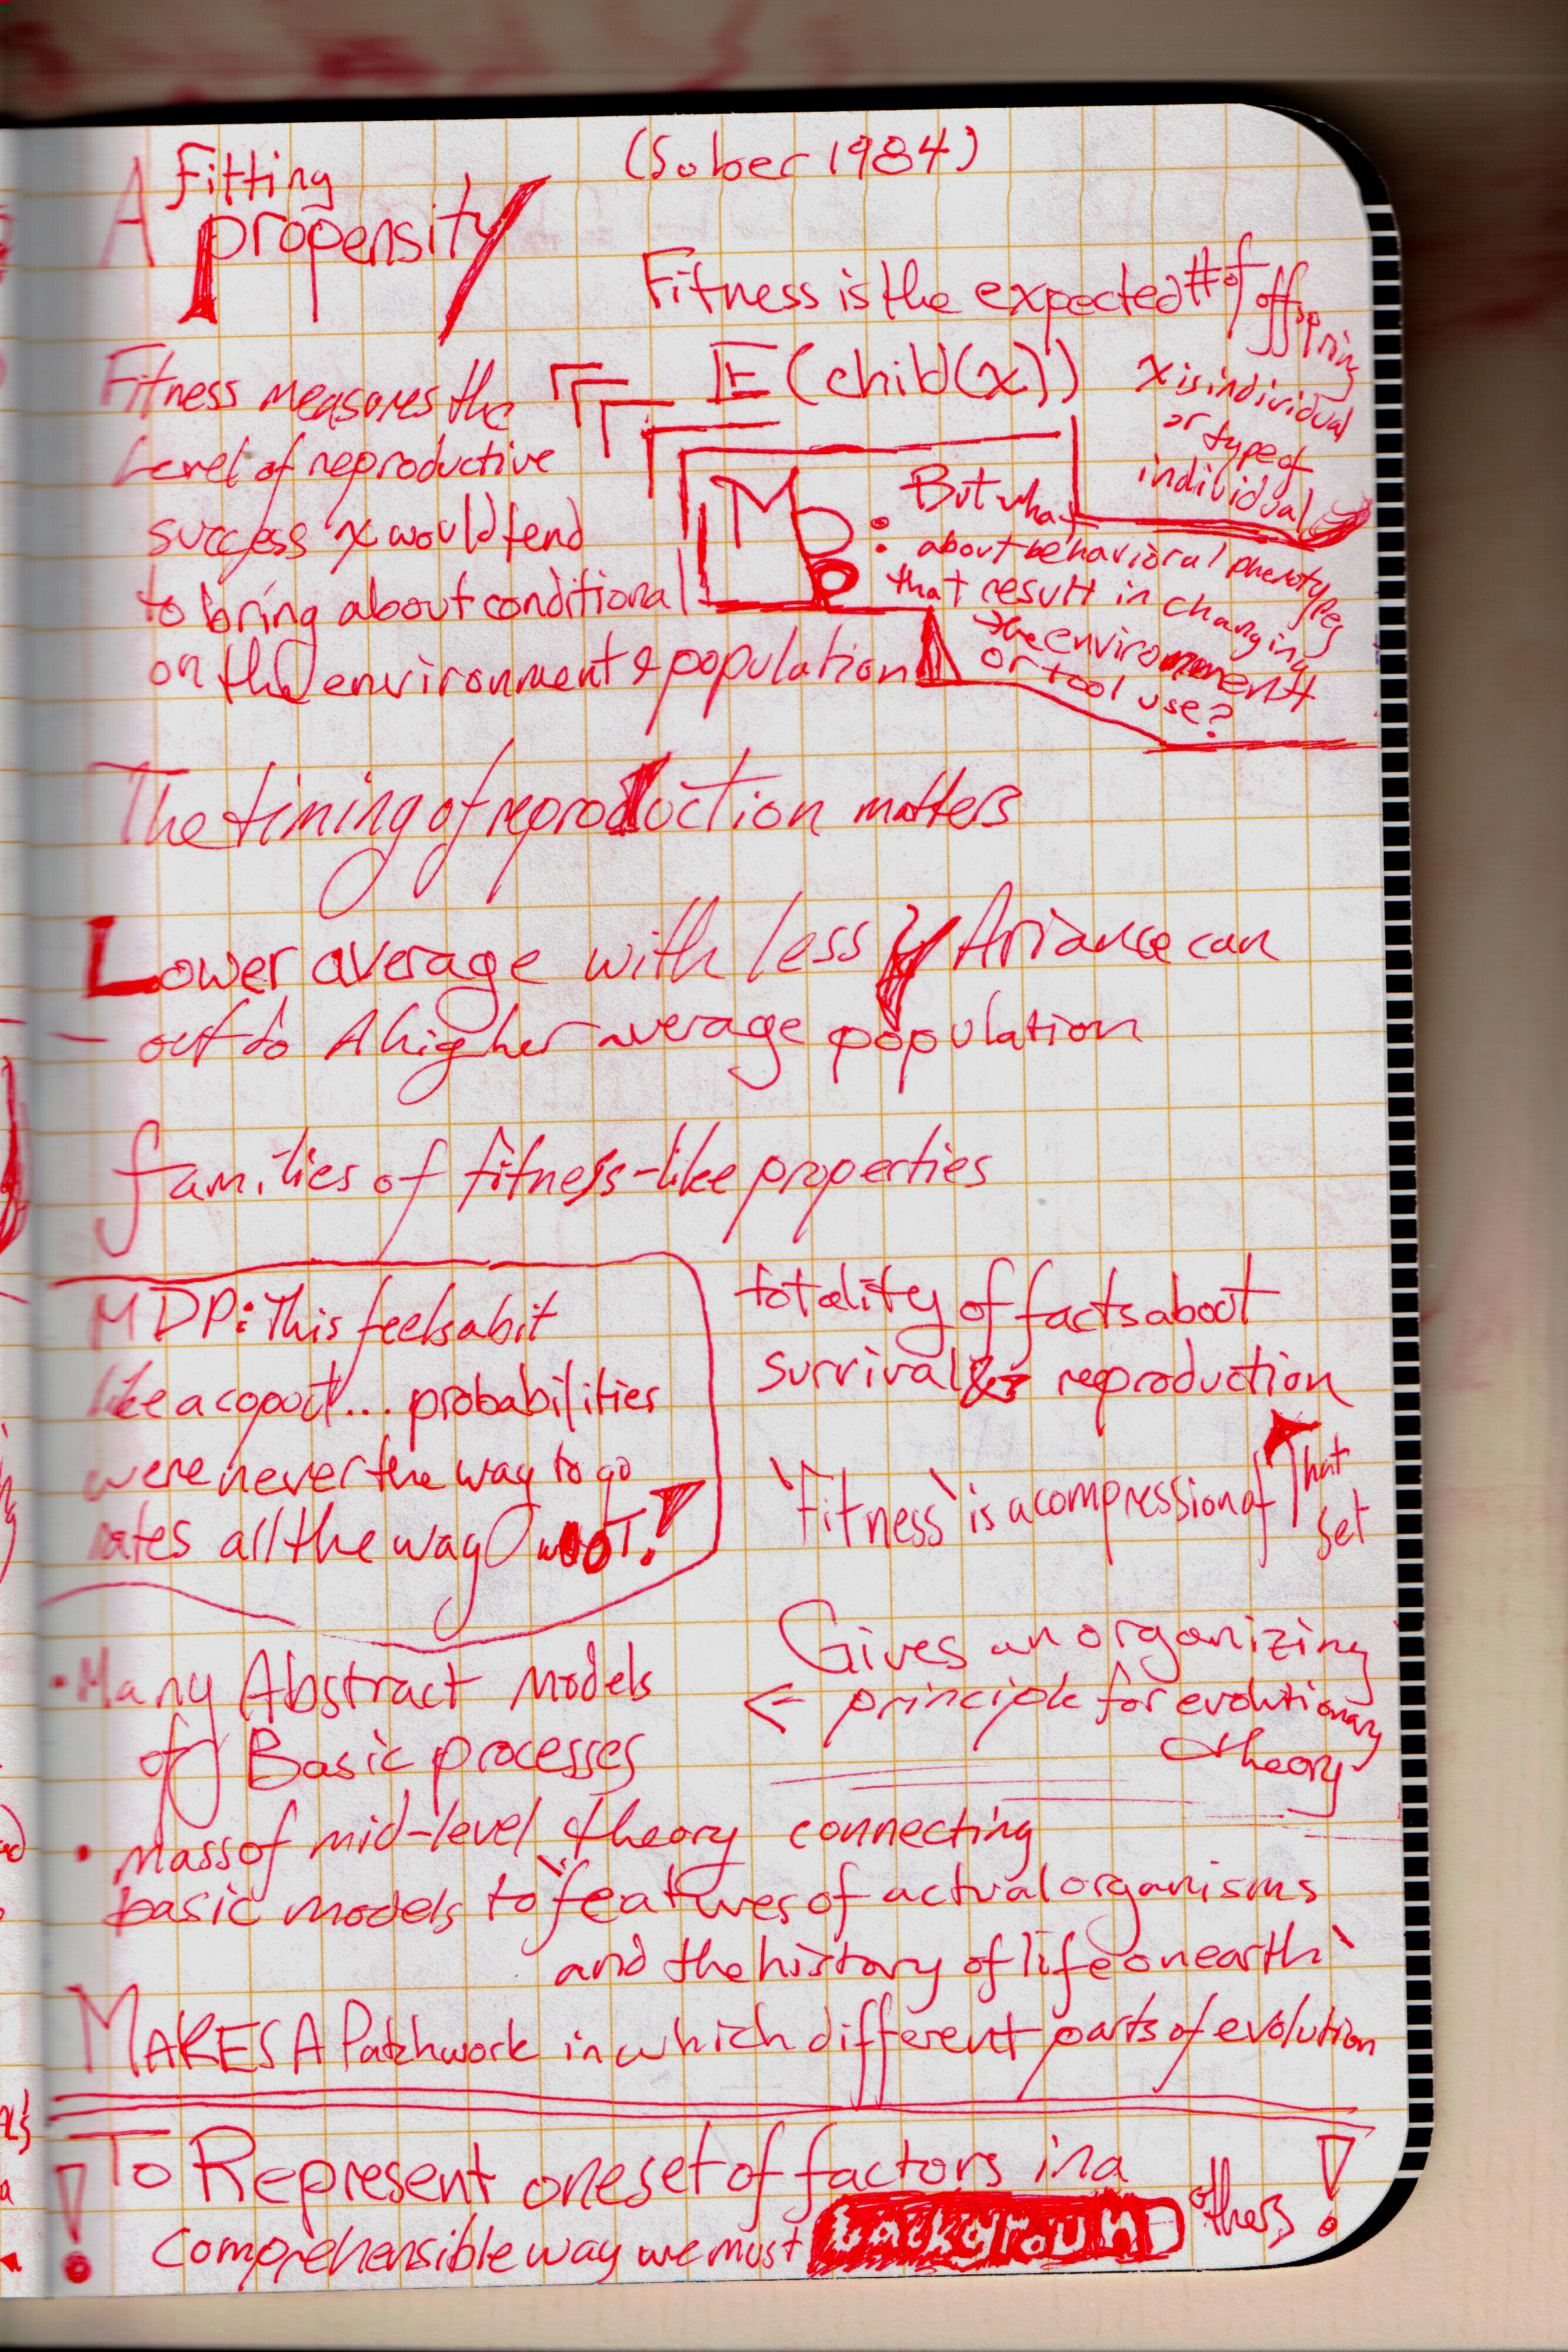 A Fitting
propensity
(Sober 1984)
Fitness is the expected # of offspring
E(child(x))
x is individual
or type of
individual
Fitness measures the
Level of reproductive
success x would tend
to bring about conditional
on the environment & population
MD: But what
about behavioral phenotypes
that result in changing
the environment
or tool use?
The timing of reproduction matters
Lower average with less Variance can
out do A higher average population
families of fitness-like properties
MDP: This feels a bit
like a copout... probabilities
were never the way to go
rates all the way
totality of facts about
survival & reproduction
`Fitness` is a compression of That
set
Gives an organizing
← principle for evolutionary
theory
• Many Abstract Models
of Basic processes
• mass of mid-level theory connecting
basic models to `features of actual organisms
and the history of life on earth`
MAKES A Patchwork in which different parts of evolution
! To Represent one set of factors in a
comprehensible way we must BACKGROUND others !